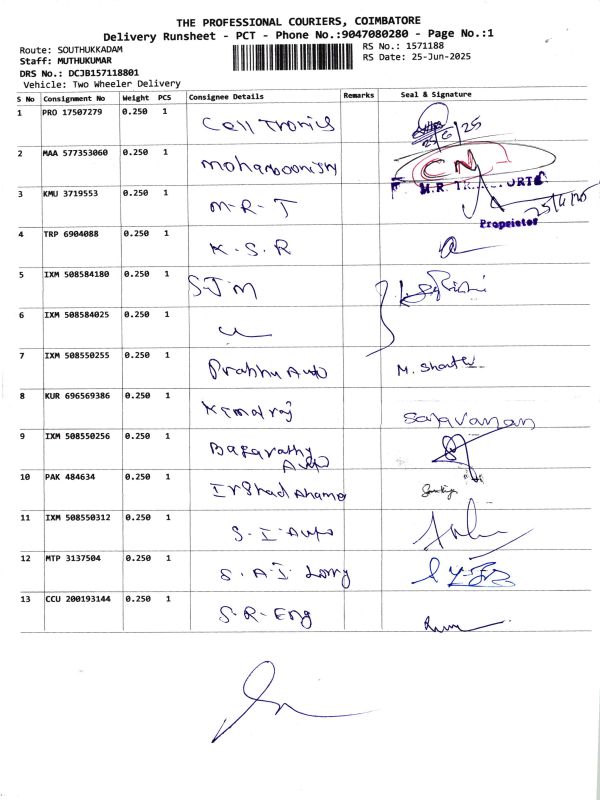 THE PROFESSIONAL COURIERS, COIMBATORE
Delivery Runsheet - PCT - Phone No.:9047080280 - Page No.:1
Route: SOUTHUKKADAM
RS No.: 1571188
Staff: MUTHUKUMAR
RS Date: 25-Jun-2025
DRS No.: DCJB157118801
Vehicle: Two Wheeler Delivery
S No Consignment No Weight PCS Consignee Details Remarks Seal & Signature
1 PRO 17507279 0.250 1 Cell Tronics
2 MAA 577353060 0.250 1 CN
3 KMU 3719553 0.250 1 M-R-T M.R.
Proprietor
4 TRP 6904088 0.250 1 K.S.R
5 IXM 508584180 0.250 1 S-J M
6 IXM 508584025 0.250 1
7 IXM 508550255 0.250 1 Prabhu Auto M.
8 KUR 696569386 0.250 1 Kamalraj Saravanan
9 IXM 508550256 0.250 1 Bagavathy
Auto
10 PAK 484634 0.250 1 Irshad Ahamed
11 IXM 508550312 0.250 1 S-I-Auto
12 MTP 3137504 0.250 1 S.A.I. Lorry
13 CCU 200193144 0.250 1 S-R-Eng